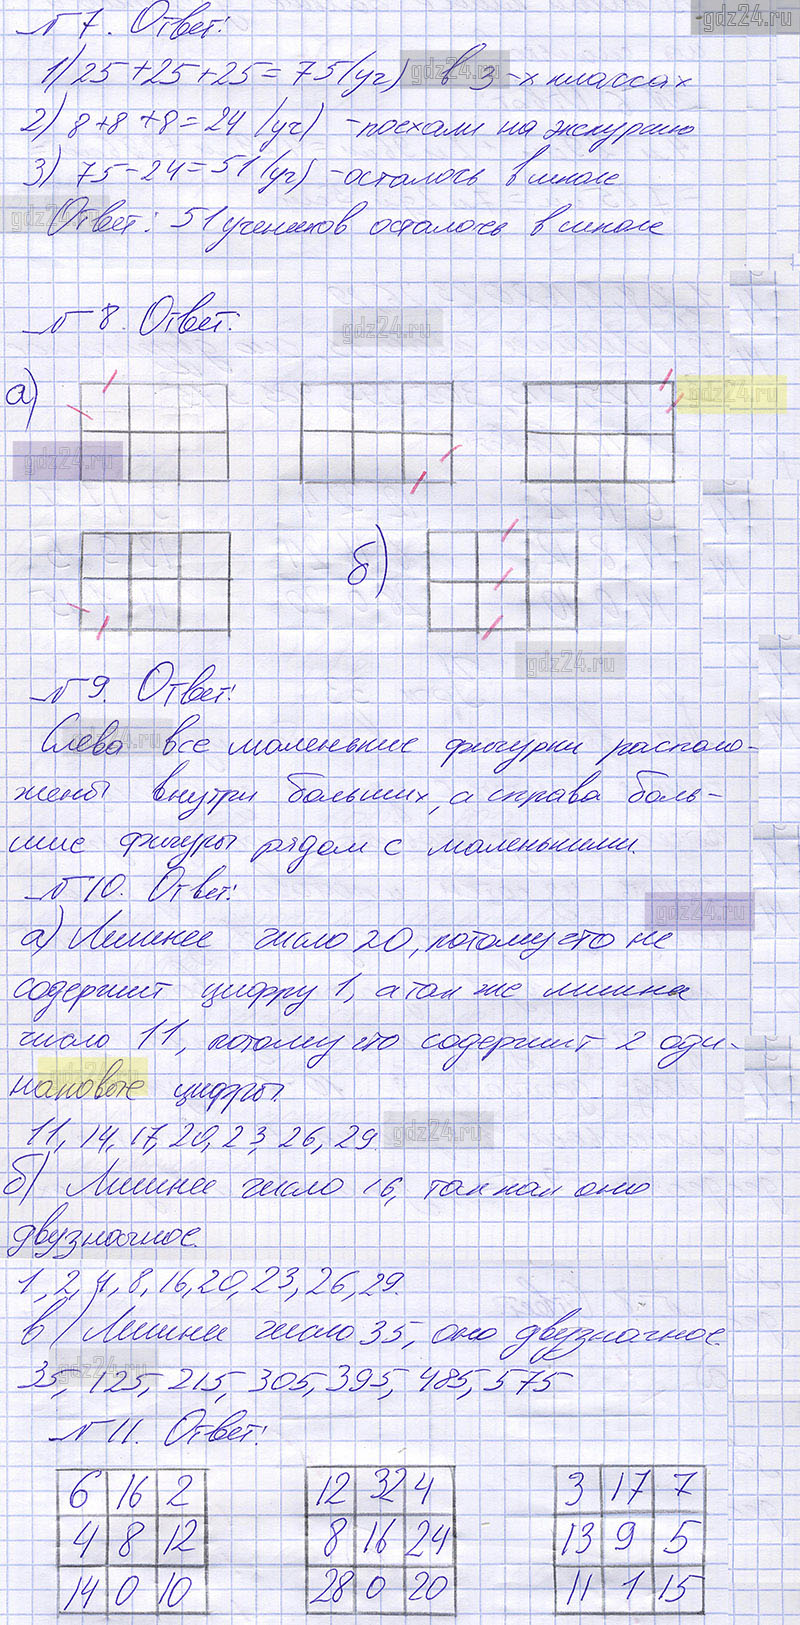 gdz24.ru
№7. Ответ:
1) 25+25+25=75(уч) в 3-х классах
gdz24.ru
2) 8+8+8=24 (уч) - поехали на экскурсию
3) 75-24=51 (уч) - осталось в школе
gdz24.ru
Ответ: 51 учеников осталось в школе
№8. Ответ:
gdz24.ru
а)
gdz24.ru
gdz24.ru
б)
gdz24.ru
№9. Ответ:
gdz24.ru
Слева все маленькие фигурки располо-
жены внутри больших, а справа боль-
шие фигуры рядом с маленькими.
№10. Ответ:
gdz24.ru
а) Лишнее число 20, потому что не
содержит цифру 1, а так же лишнее
число 11, потому что содержит 2 оди-
gdz24.ru
наковые цифры.
11, 14, 17, 20, 23, 26, 29.
gdz24.ru
б) Лишнее число 16, так как оно
двузначное.
1, 2, 4, 8, 16, 20, 23, 26, 29.
в) Лишнее число 35, оно двузначное.
gdz24.ru
35, 125, 215, 305, 395, 485, 575
№11. Ответ:
6 16 2 12 32 4 3 17 7
4 8 12 8 16 24 13 9 5
14 0 10 28 0 20 11 1 15